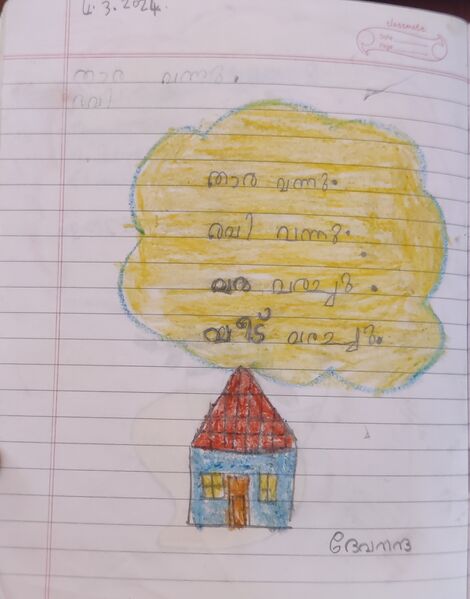 4.3.2024.
classmate
Date
Page
താര വന്നു.
രവി
താര വന്നു.
രവി വന്നു.
വര വരച്ചു.
വീട് വരച്ചു.
ദേവനന്ദ